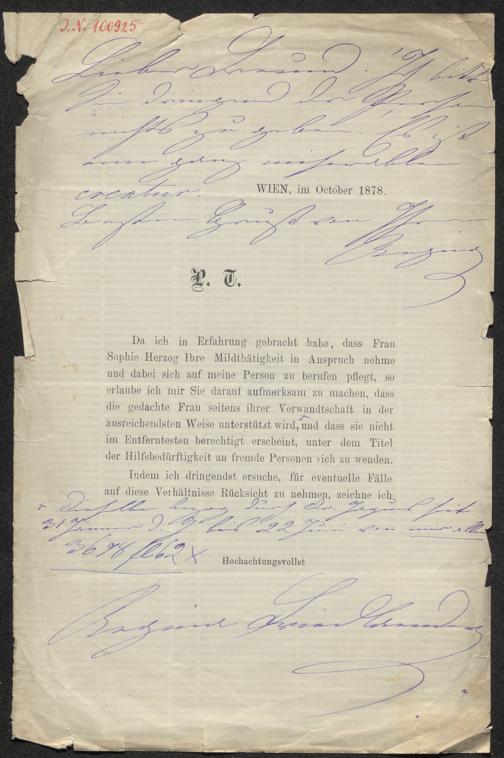 J. N. 100925
Lieber Freund. Ich bitte
Sie dringend der Person
nichts zu geben. Es ist
eine ganz miserable
creatur.
WIEN, im October 1878.
Besten Gruss von Ihrer
Regine
P. T.
Da ich in Erfahrung gebracht habe, dass Frau
Sophie Herzog Ihre Mildthätigkeit in Anspruch nehme
und dabei sich auf meine Person zu berufen pflegt, so
erlaube ich mir Sie darauf aufmerksam zu machen, dass
die gedachte Frau seitens ihrer Verwandtschaft in der
ausreichendsten Weise unterstützt wird,+ und dass sie nicht
im Entferntesten berechtigt erscheint, unter dem Titel
der Hilfsbedürftigkeit an fremde Personen sich zu wenden.
Indem ich dringendst ersuche, für eventuelle Fälle
auf diese Verhältnisse Rücksicht zu nehmen, zeichne ich
+ Dieselbe bezog durch Dr. seit
31 Jänner d. J. bis 22 Juni von mir allein
3698 fl 62 x
Hochachtungsvollst
Regine Friedlaender